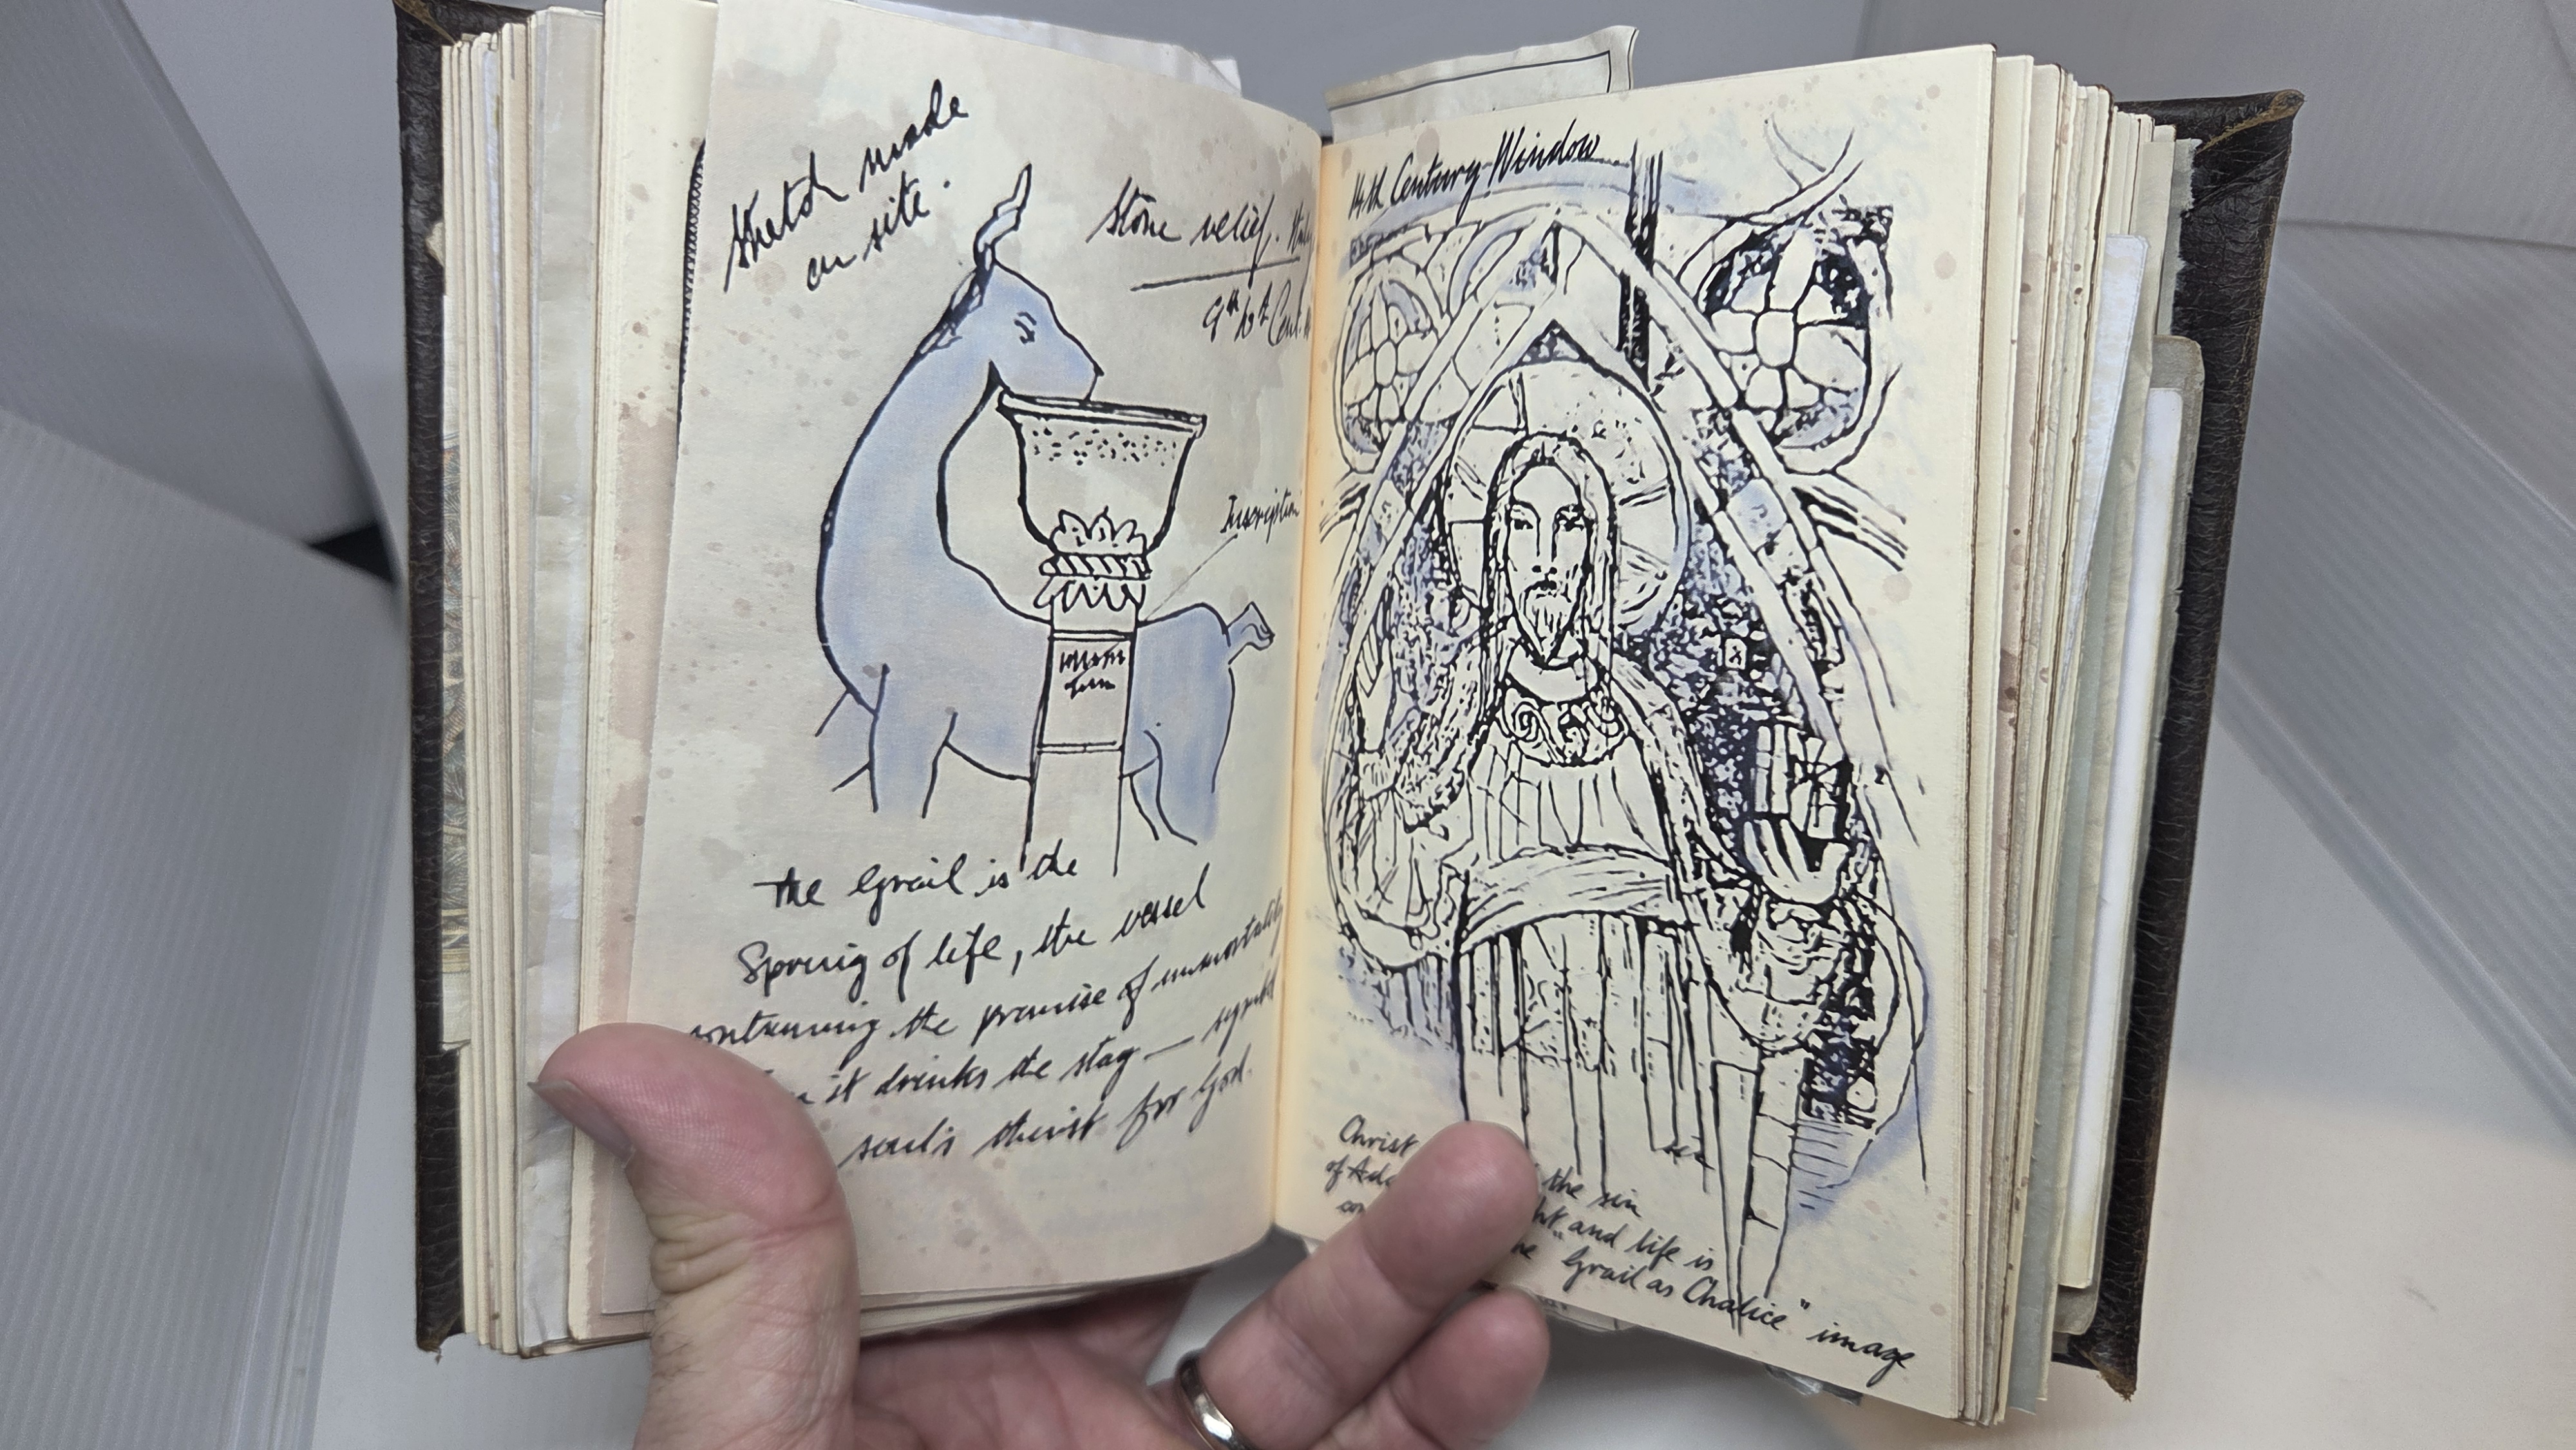 Sketch made
on site.
Stone relief.
9th 10th Cent.
Inscription
The Grail is the
Spring of life, the vessel
containing the promise of immortality
it drinks the stag — symbol
soul's thirst for God.
14th Century Window
Christ
of Ada
the sin
and life is
"Grail as Chalice" image